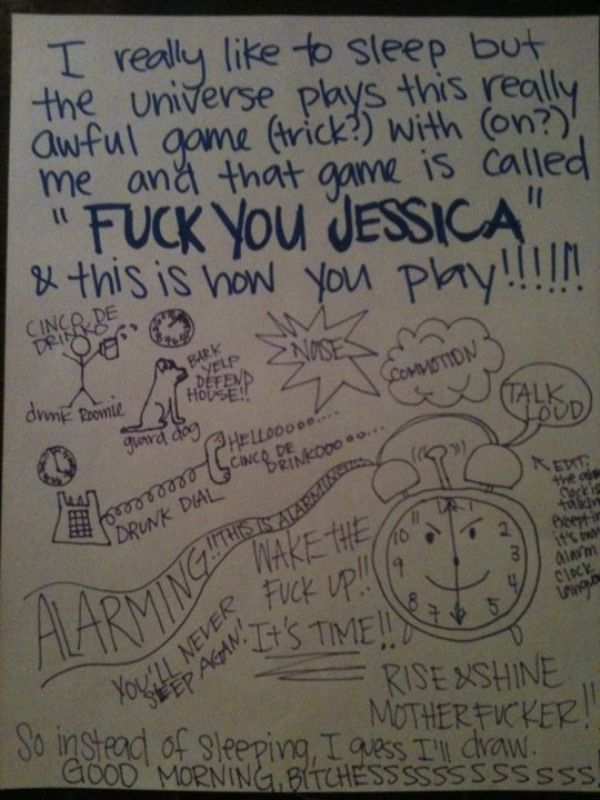 I really like to sleep but
the universe plays this really
awful game (trick?) with (on?)
me and that game is called
"FUCK YOU JESSICA"
& this is how you play!!!!!!
CINCO DE
DRINKO
drunk Roomie
BARK
YELP
DEFEND
HOUSE!!
guard dog
NOISE
COMMOTION
TALK
LOUD
HELLOOOOO.....
CINCO DE
DRINKOOO oo...
DRUNK DIAL
ALARMING!!THIS IS ALARMING!!!
11 1
10 2
9 3
8 4
7 6 5
EDIT:
the
clock is
talking
in
it's own
alarm
clock
language
WAKE THE
FUCK UP!!
IT'S TIME!!
YOU'LL NEVER
SLEEP AGAIN!
RISE & SHINE
MOTHERFUCKER!!
So instead of sleeping, I guess I'll draw.
GOOD MORNING, BITCHESSSSSSSSSSSS